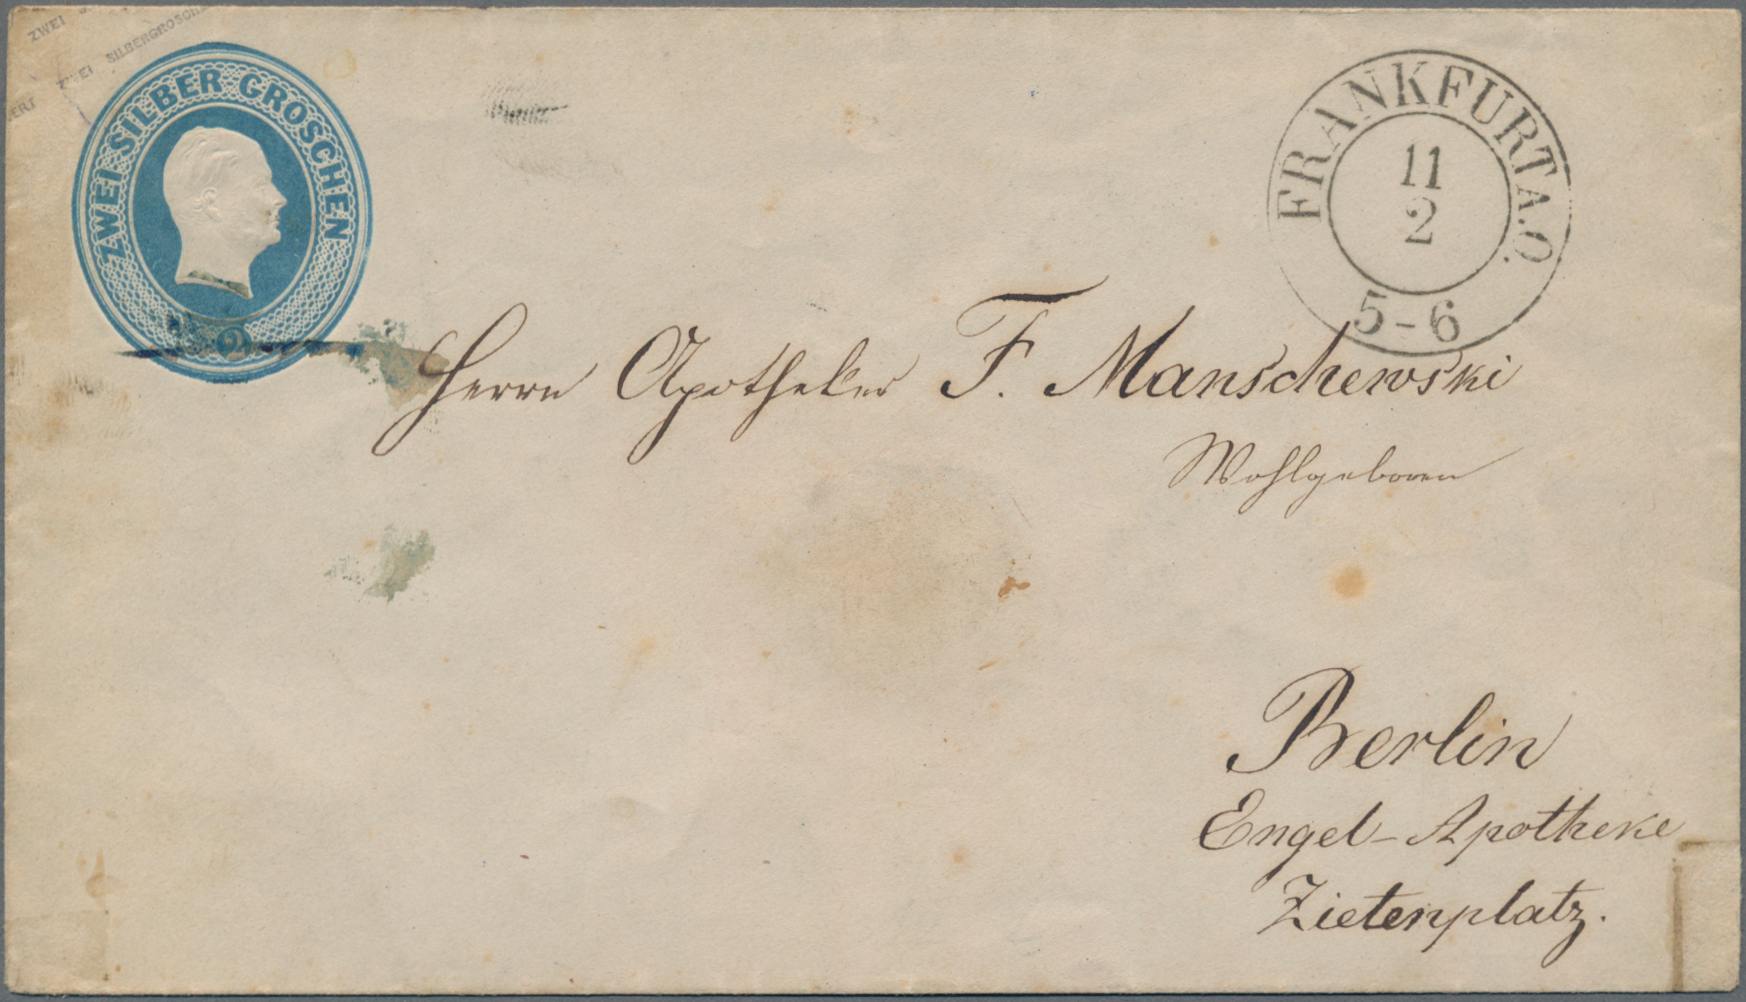 ZWEI SILBERGROSCHEN
ZWEI SILBER GROSCHEN
2
FRANKFURT A.O.
11
2
5-6
Herrn Apotheker F. Manschewski
Wohlgeboren
Berlin
Engel-Apotheke
Zietenplatz.